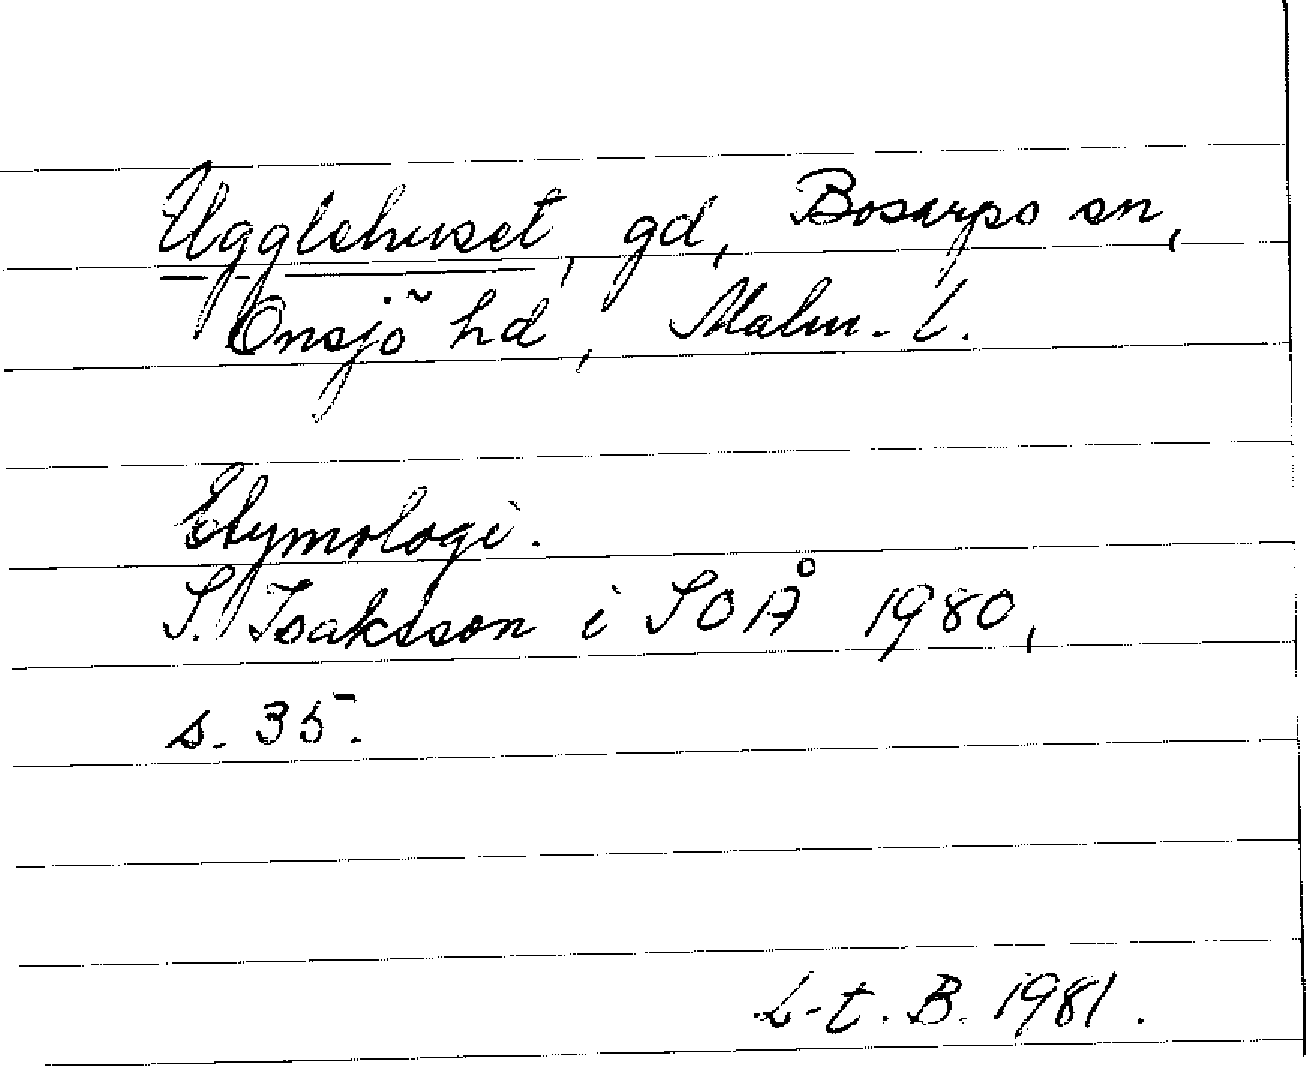 Ugglehuset, gd, Bosarps sn,
Onsjö hd, Malm. l.
Etymologi.
S. Isaksson i SOÅ 1980,
s. 35.
L-t. B. 1981.